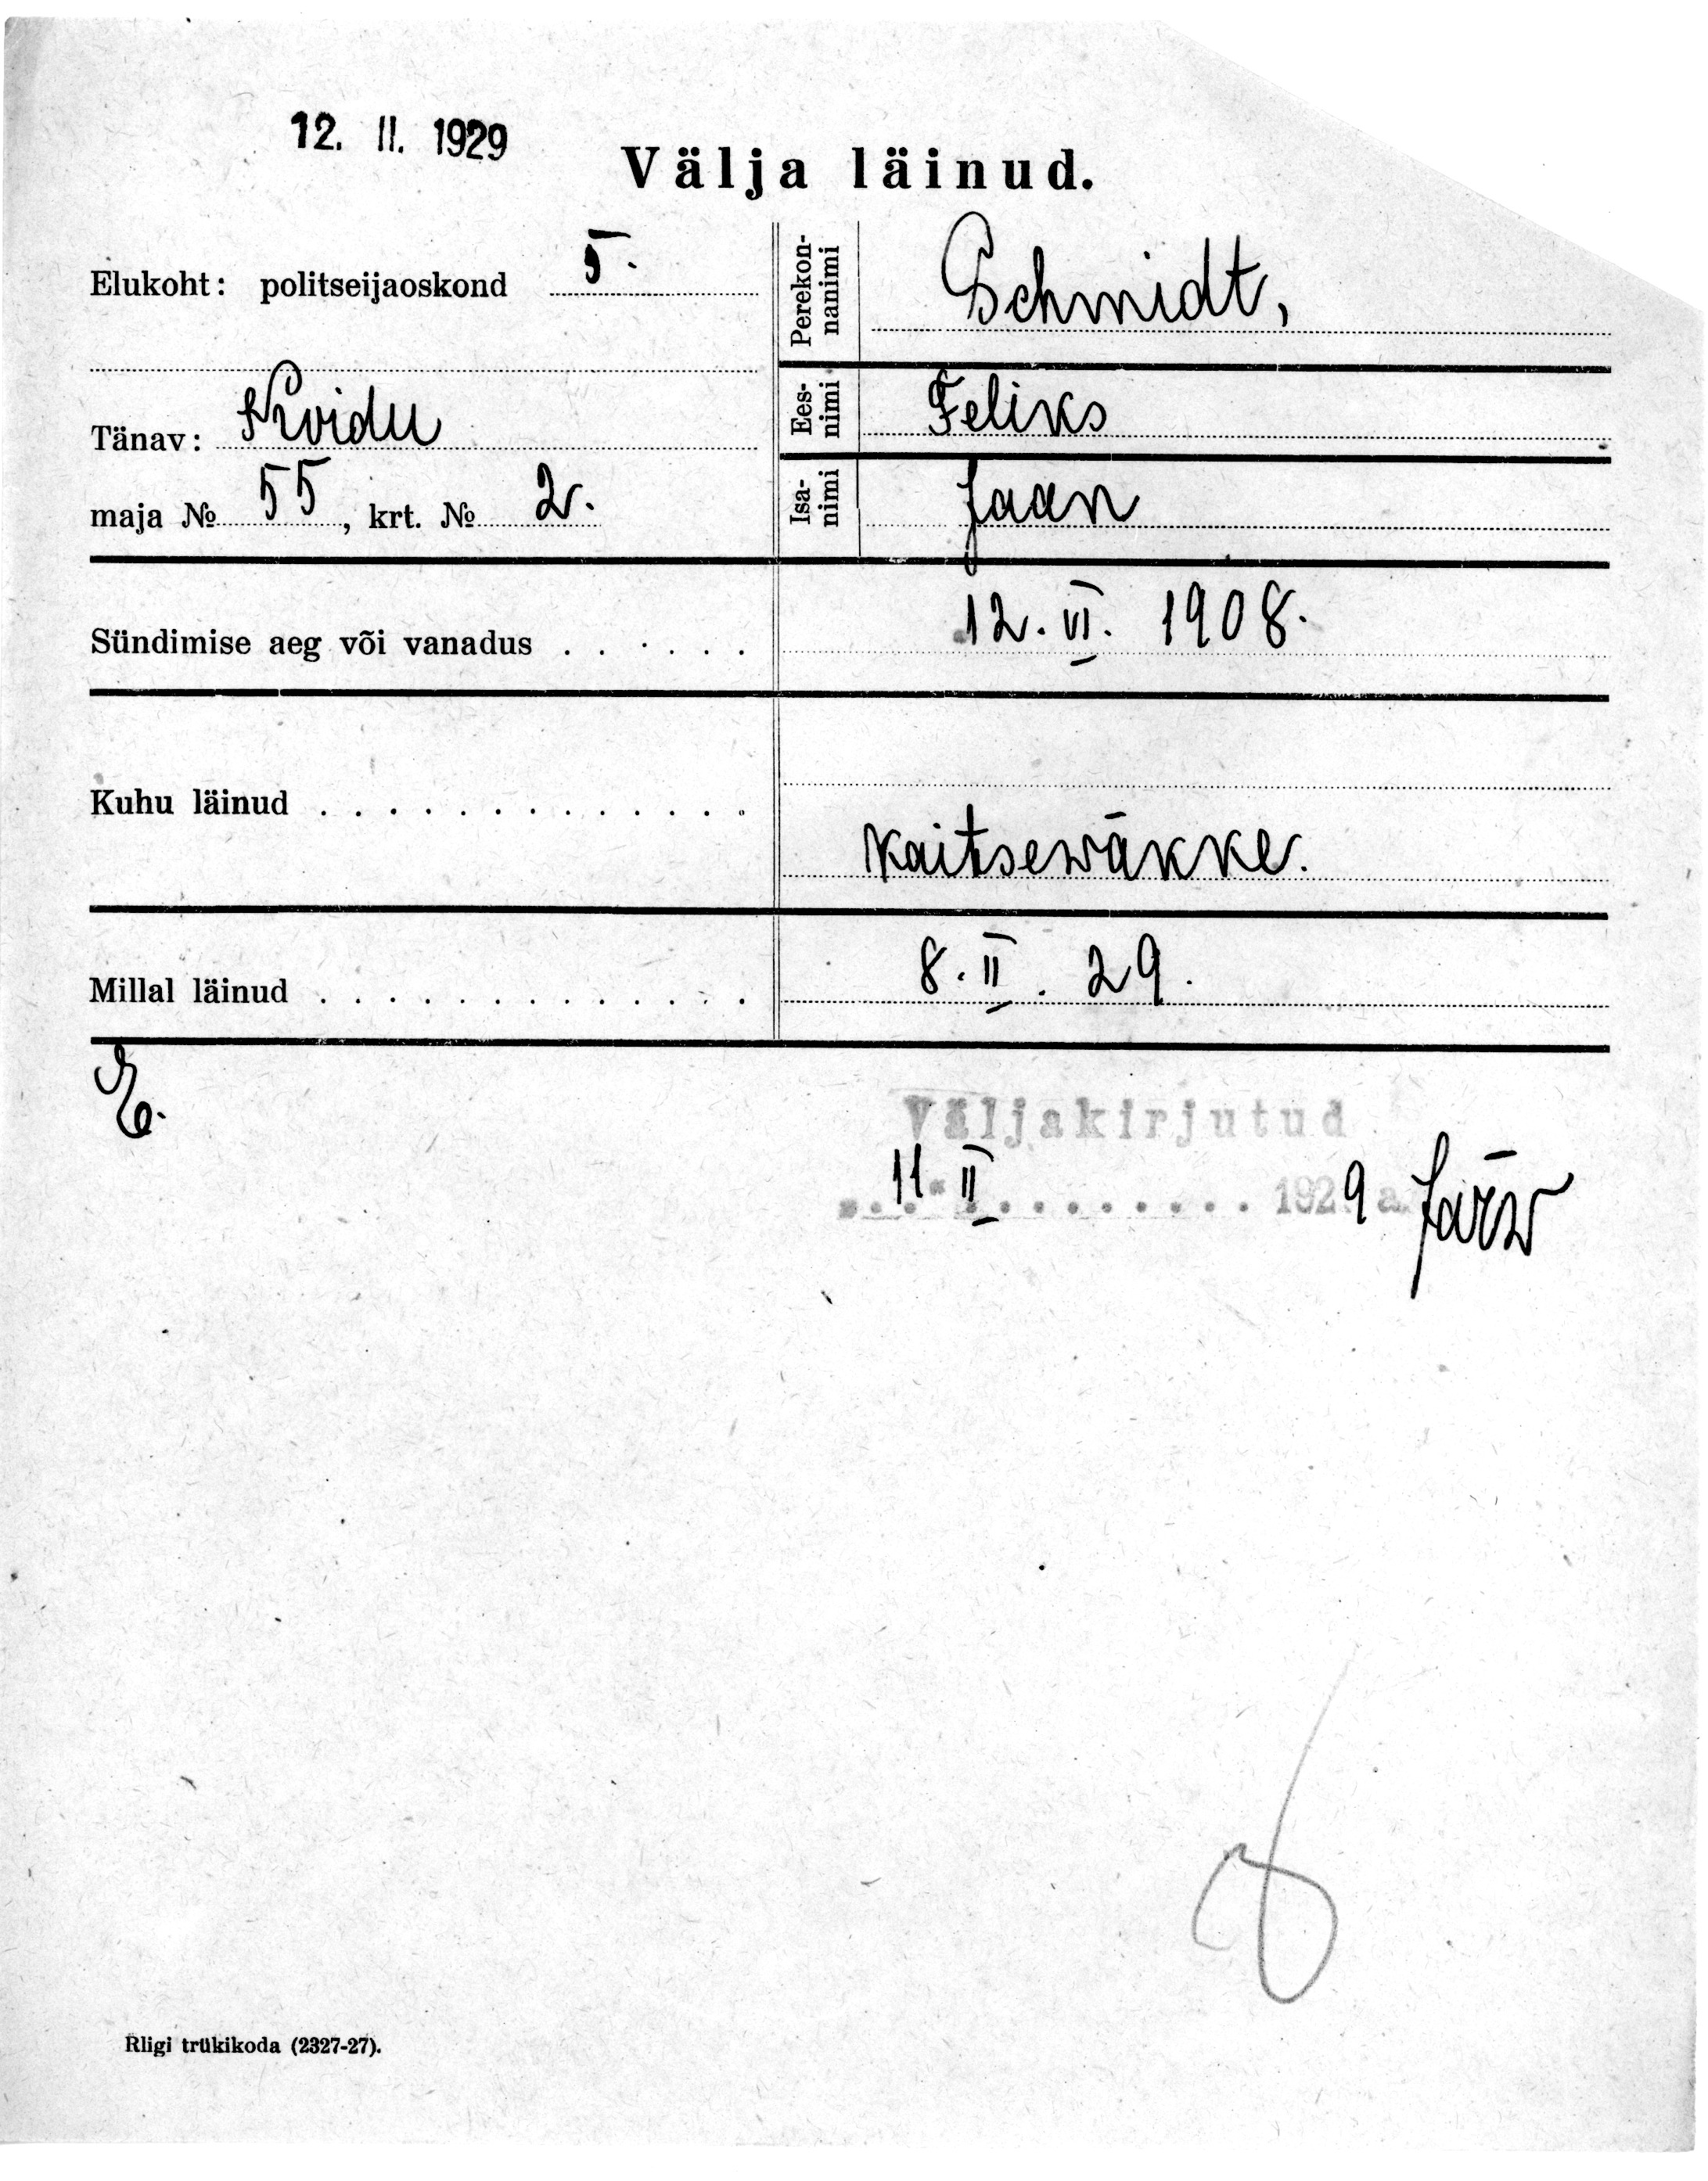 12. II. 1929
Välja läinud.
Elukoht: politseijaoskond 5.
Tänav: Koidu
maja № 55, krt. № 2.
Perekon-
nanimi
Schmidt,
Ees-
nimi
Feliks
Isa-
nimi
Jaan
Sündimise aeg või vanadus . . . . . . 12. VI. 1908.
Kuhu läinud . . . . . . . . . . . . .
Kaitsewäkke.
Millal läinud . . . . . . . . . . . . . 8. II. 29.
E.
Väljakirjutud
11. II . . . . . . . . . 1929 a. Järw
Riigi trükikoda (2327-27).